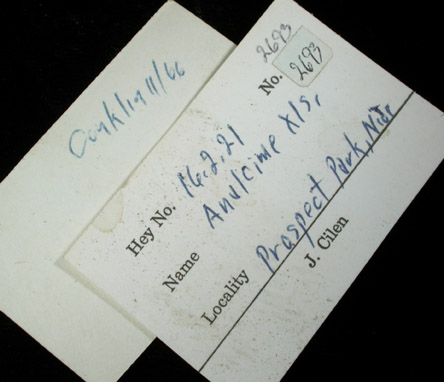 Conklin 11/66
2693
No. 2693
Hey No. 16.2.21
Name Analcime xls,
Locality Prospect Park, N.J.
J. Cilen